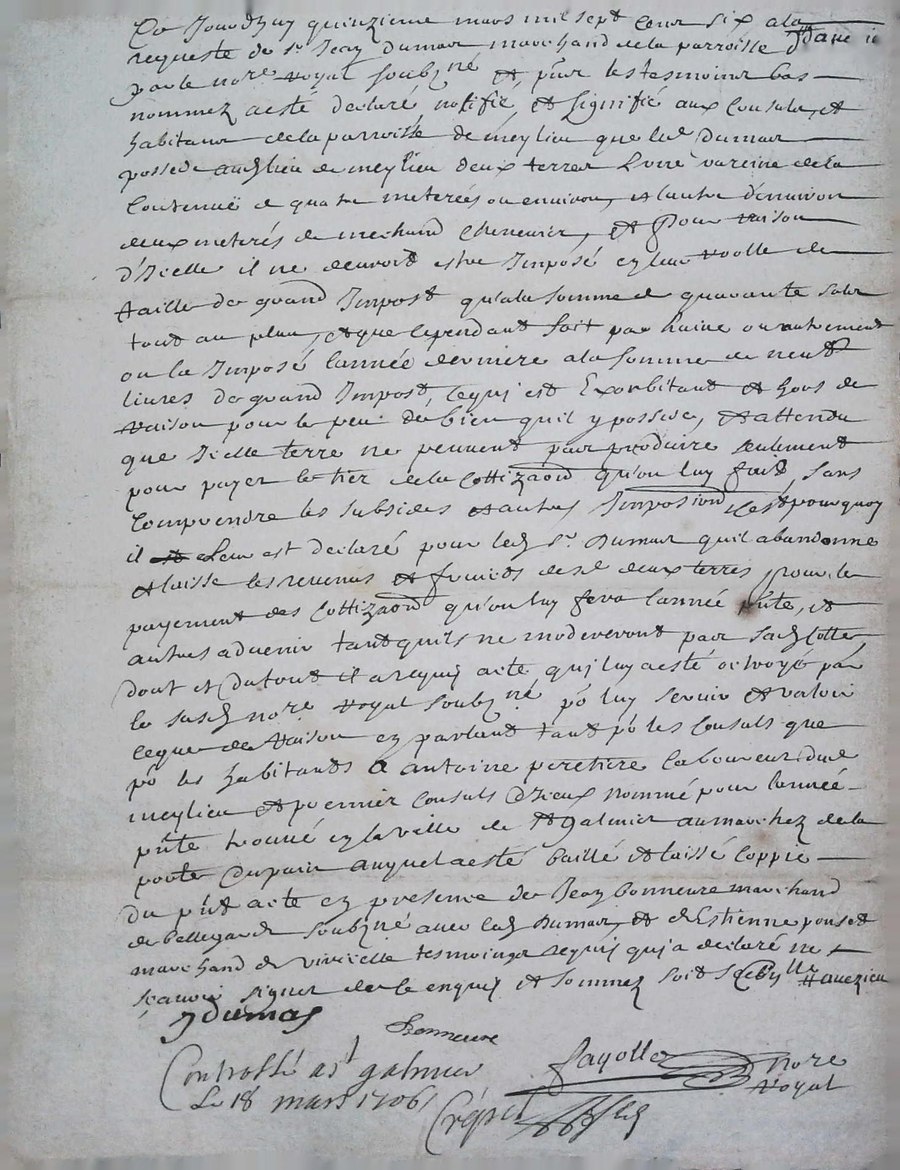 Ce Jourdhuy quinzieme mars mil sept Cent six a la
requeste de sr Jean Dumas marchand de la parroisse
par le nore Royal soubzné et pnt les tesmoins bas
nommez a esté declaré notifié et signifié aux Consuls et
habitans de la parroisse de meylieu que led Dumas
possede aud lieu de meylieu deux terres Lune vareine de la
Contenuë de quatre meterées ou environ, et lautre denviron
deux meterés de mechand chenevier, et pour raison
d'Icelle il ne devroit estre Imposé en leur roolle de
taille de grand Impost qu'a la somme de quarante sols
tout au plus, et que cependant soit par haine ou autrement
on la Imposé lannée derniere a la somme de neuf
livres de grand Impost, ce qui est Exorbitant et hors de
raison pour le peu de bien quil y possede, et attendu
que Icelle terre ne peuvent pas produire seulement
pour payer le tier de la Cottizaon qu'on luy fait, sans
Comprendre les subsides et autres Imposion, cest pourquoy
il Leur est declaré pour led sr. Dumas quil abandonne
et laisse les revenus et fruicts desd deux terres pour le
payement des Cottizaons qu'on luy fera lannée pnte, et
autres advenir tant quils ne modereront pas sad Cotte
dont et du tout il a requis acte qui luy a esté octroyé par
le susd nore Royal soubzné po luy servir et valoir
ce que de Raison en parlant tant po les Consuls que
po les habitants a antoine peretiere laboureur dud
meylieu et premier Consuls d'Iceux nommé pour lannée
pnte trouvé en la ville de St Galmier au marchez de la
porte auquel a esté baillé et laissé Coppie
du pnt acte en presence de Jean bonneure marchand
de bellegarde soubzné avec led Dumas, et d'Estienne ponset
marchand de tesmoings requis qui a declaré ne
scavoir signer de ce enquis et sommez
J dumas
Bonneure
fayolle nore
Royal
Controllé a st galmier
Le 18 mars 1706